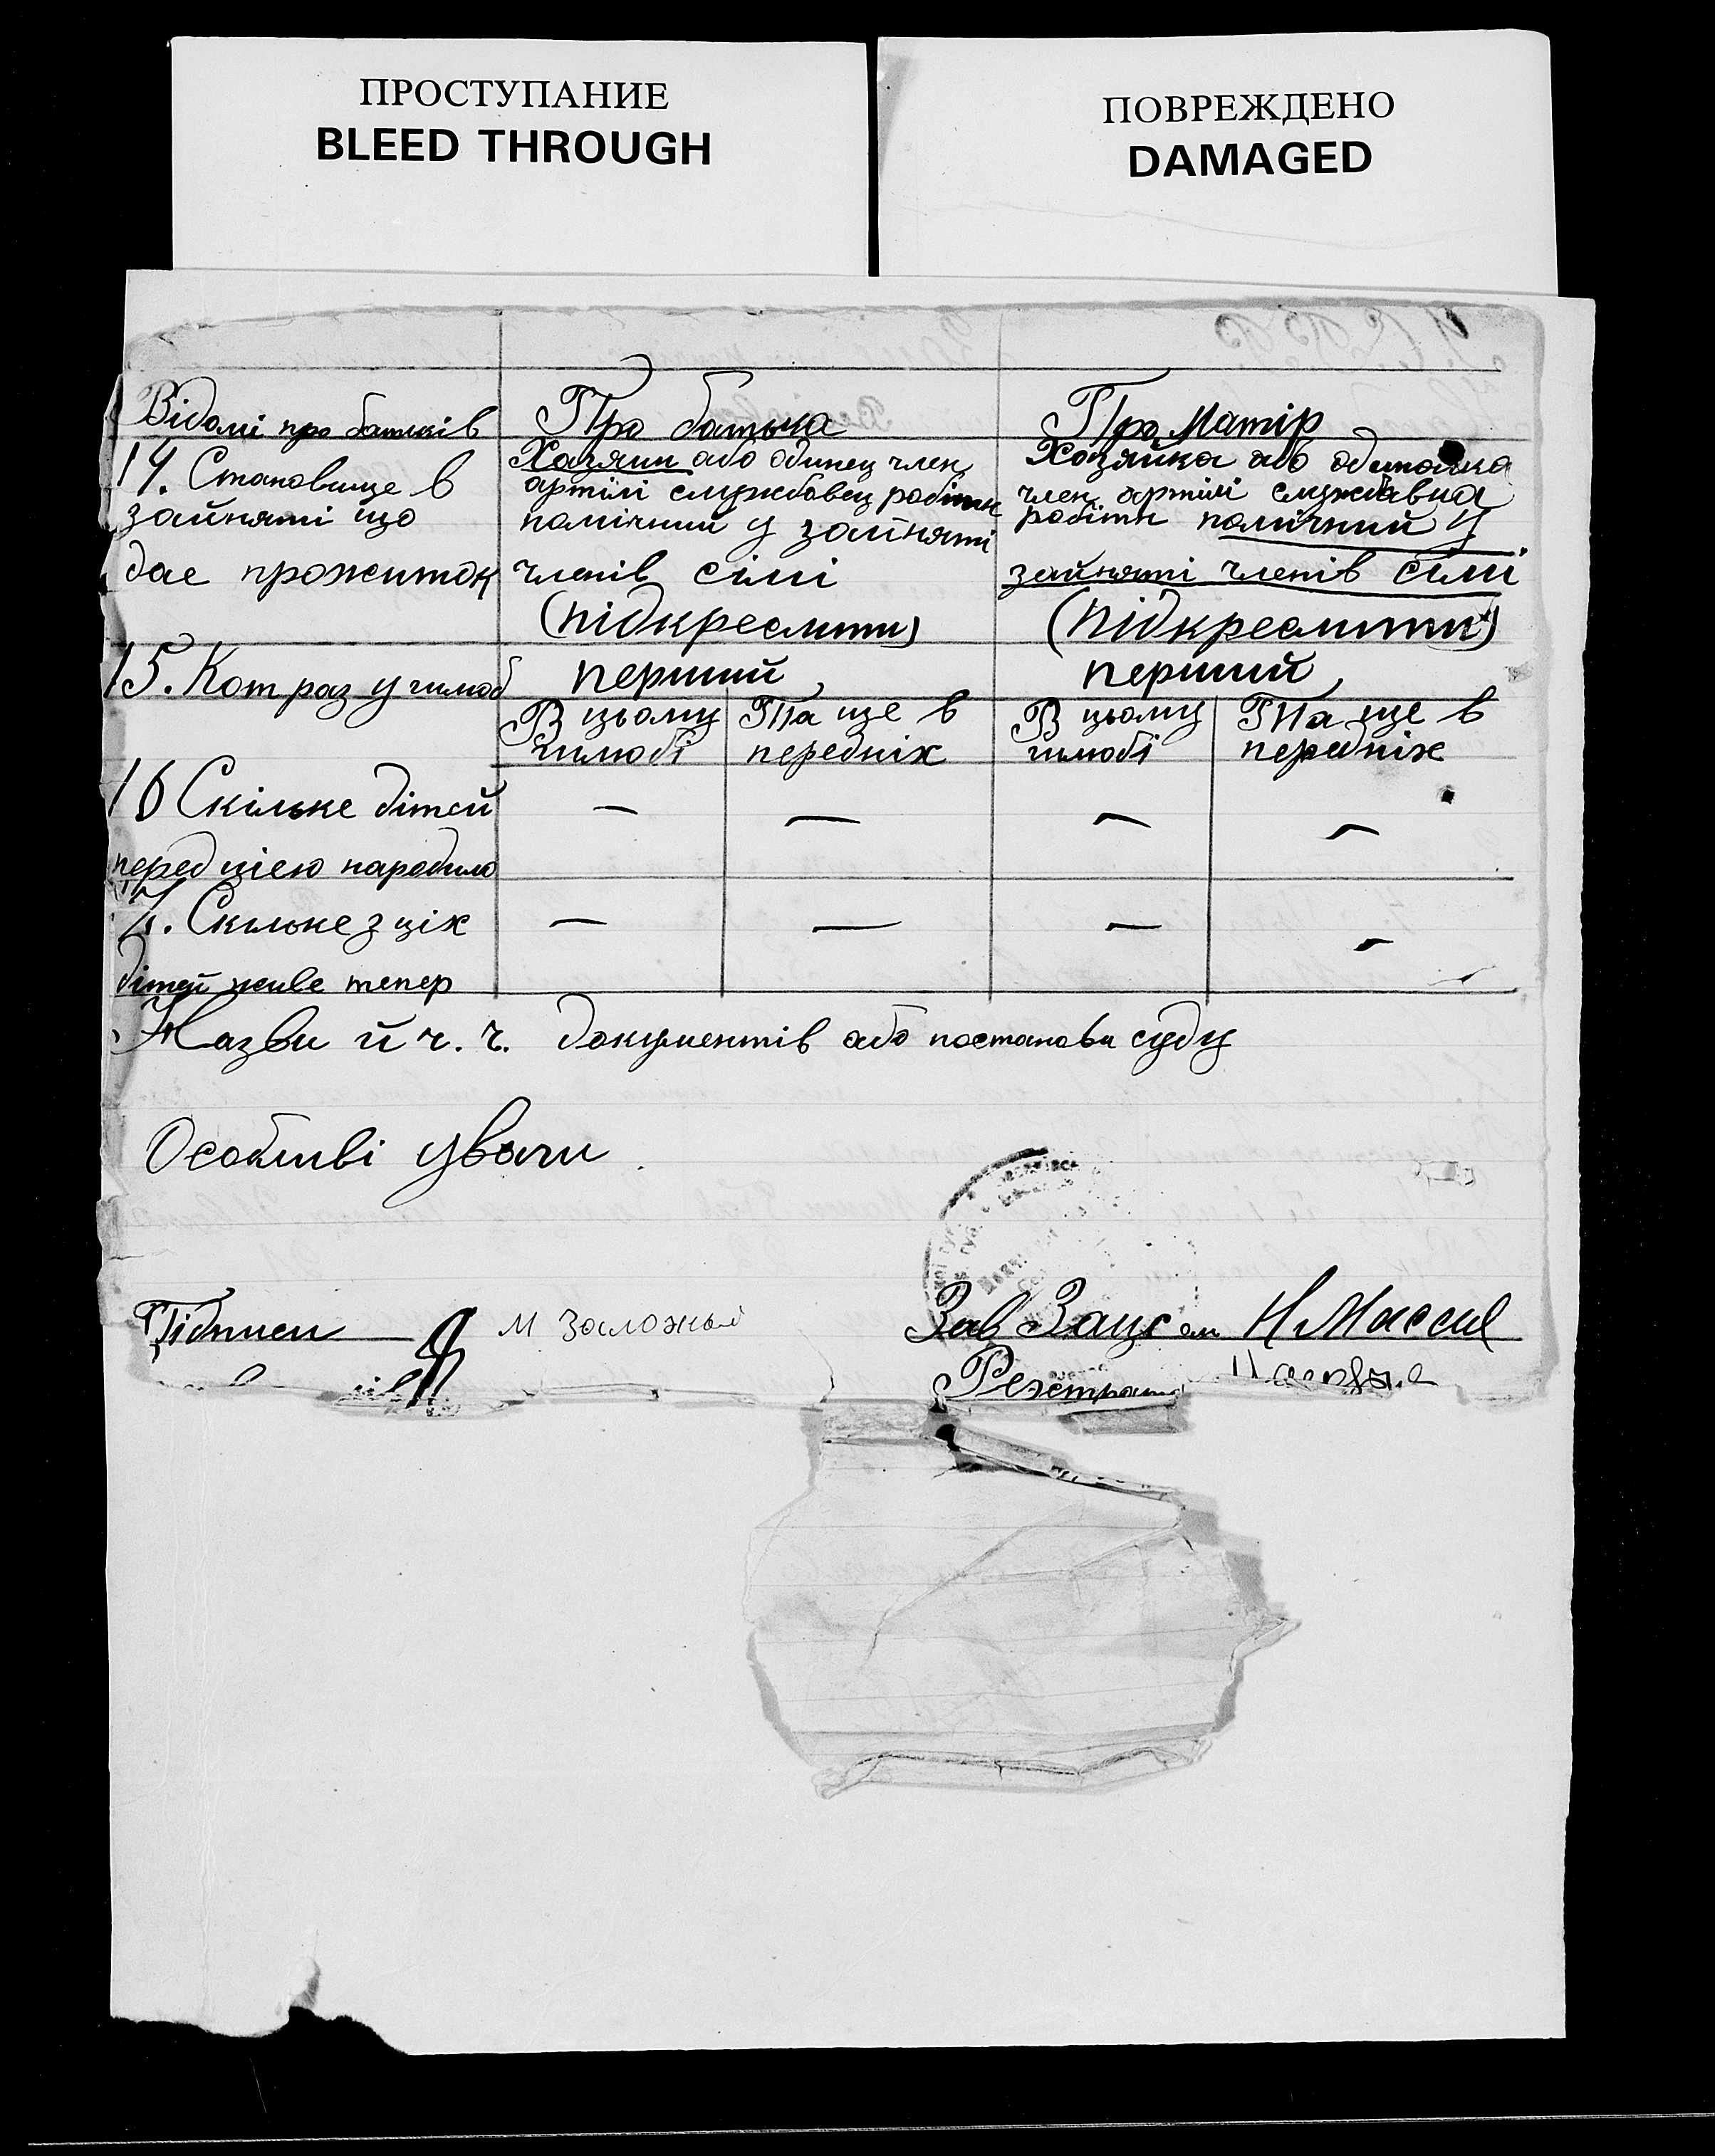 ПРОСТУПАНИЕ
BLEED THROUGH
ПОВРЕЖДЕНО
DAMAGED
Відомі про батьків
Про батька
Про Матір
14. Становище в
зайняті що
дае прожиток
Хазяин або одинец член
артілі службовец робітн
помічний у зайняті
членів сімі
(підкреслити)
Хозяйка або одиначка
член артілі службавця
робітн помічний у
зайняті членів сімі
(підкреслити)
15. Кот раз у шлюб
перший
перший
В цьому
шлюбі
Та ще в
передніх
В цьому
шлюбі
Та ще в
передніх
16 Скільке дітей
перед цією народило
— — — —
17. Скільке з ціх
дітей живе тепер
— — — —
Назви й ч. ч. документів або постанови суду
Особливі уваги
Підписи
М Заложный
Зав Загс ом Н Массил
Реэстрат